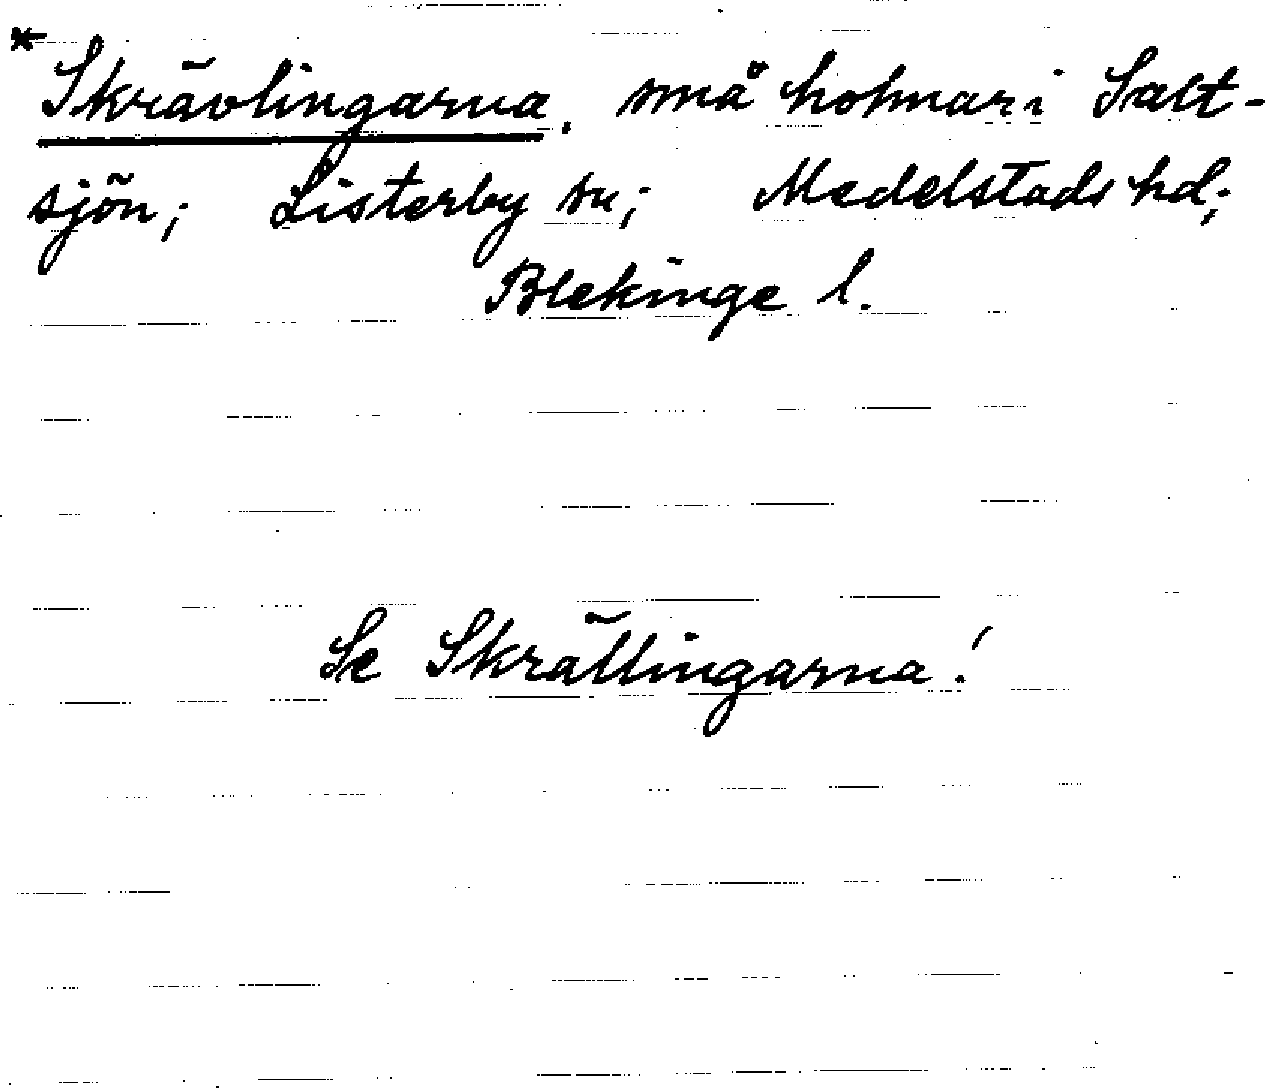 * Skrävlingarna. små holmar i Salt-
sjön; Listerby sn; Medelstads hd;
Blekinge l.
Se Skrällingarna!